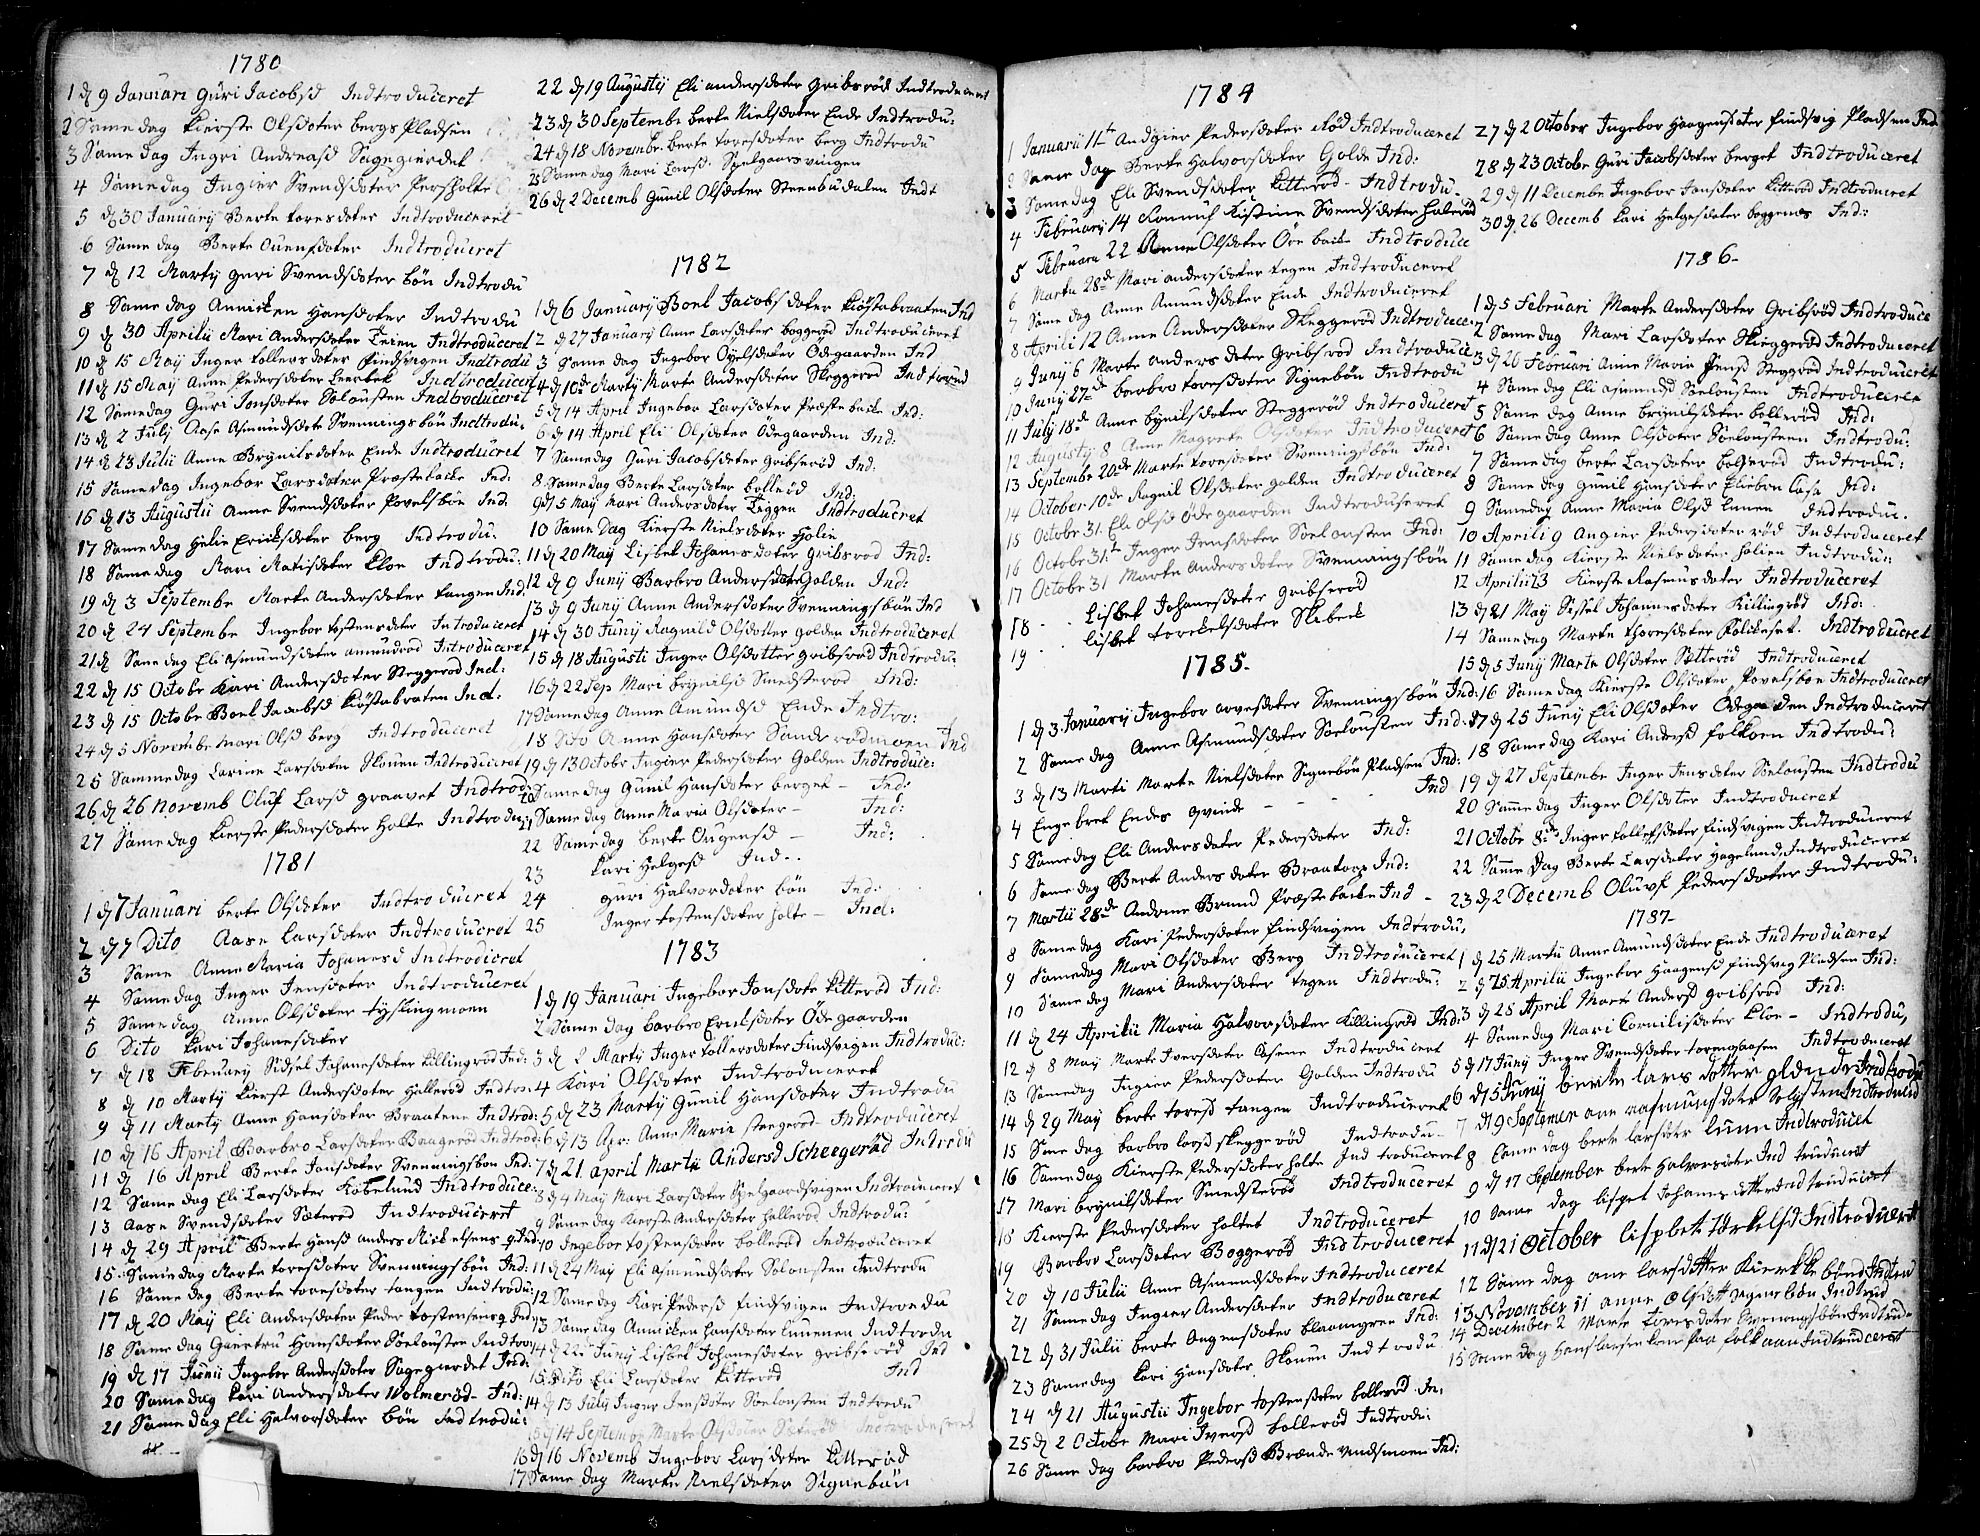 1780
1 d 9 Januari Guri Jacobsd Indtroduceret
2 Same dag Kierste Olsdoter bergs Pladsen
3 Same dag Ingri Andreasd Sagegierdet
4 Same dag Ingier Svendsdoter Persholte
5 d 30 Januarij Berte toresdoter Indtroduceret
6 Same dag Berte Ouensdoter Indtroduceret
7 d 12 Martij guri Svendsdoter bön Indtrodu
8 Same dag Annicken Hansdoter Indtrodu
9 d 30 Aprilii Mari Andersdoter Teien Indtroduceret
10 d 15 Maij Inger tollersdoter findsvigen Indtrodu
11 d 15 Maij Anne Pedersdoter Leerbek Indtroducert
12 Same dag Guri Jonsdoter Solousten Indtroduceret
13 d 2 Julij Aase Asmundsdote Svenningsbön Indtrodu:
14 d 23 Julii Anne Brynilsdoter Ende Indtroducret
15 Same dag Ingebor Larsdoter Præstebacke Ind:
16 d 13 Augustii Anne Svendsdoter Povelsbön Ind.
17 Same dag Helie Ericksdoter berg Indtrodu.
18 Same dag Mari Matisdoter Kloe Indtrodu:
19 d 3 Septembe Marte Andersdoter tangen Ind:
20 d 24 Septembe Ingebor tostensdoter Introduceret
21 d Same dag Eli Asmundsdoter amunderod Introduceret
22 d 15 Octobe Kari Andersdoter Steggerod Ind:
23 d 15 Octobe Boel Jacobsd Kiöstabraten Ind.
24 d 5 Novembe Mari Olsd berg Indtroduceret
25 Samme dag Larine Larsdoter Skouen Indtroduceret
26 d 26 Novemb Oluf Larsd graavet Indtrod:
27 Same dag Kierste Pedersdoter Holte Indtrodu:
1781
1 d 7 Januari berte Olsdoter Indtroducret
2 d 7 Dito Aase Larsdoter Indtroduceret
3 Same Anne Maria Johanesd Indtrodicret
4 Same dag Inger Jensdoter Indtroduceret
5 Same dag Anne Olsdoter tyslingmoen
6 Dito Kari Johanesdoter
7 d 18 Februarij Sidsel Johanesdoter Killingrod Ind:
8 d 10 Martij Kierst Andersdoter Hallerød Indtro
9 d 11 Martij Anne Hansdoter Braatene Indtrod:
10 d 16 April Barbro Larsdoter Baagerød Indtrod:
11 d 16 April Berte Jansdoter Svenningsbon Ind:
12 Same dag Eli Larsdoter Købelund Indtroduce:
13 Aase Svendsdoter Sæterød Indtroduceret
14 d 29 April Berte Hansd anders Mickelsens q Ind:
15 Same dag Merte toresdoter Svenningsbön Ind:
16 Same dag Berte toresdoter tangen Indtrodu:
17 d 20 Maij Eli Andersdoter Peder tostensens q Ind:
18 Same dag Gunetru Hansdoter Sölousten Indtrod
19 d 17 Junii Ingebor Andersdoter Sagegierdet Ind:
20 Same dag Kari Andersdoter Wolmerød Ind:
21 Same dag Eli Halvorsdoter bön Indtrodu:
22 d 19 Augustij Eli andersdoter Gribsröd Indtroduceret
23 d 30 Septembe berte Nielsdoter Ende Indtrodu:
24 d 18 Novembe berte toresdoter berg Indtrodu
25 Same dag Mari Larsd: Spelgaarsvingen
26 d 2 Decemb Gunil Olsdoter Steenbudalen Indt
1782
1 d 6 Januarij Boel Jacobsdoter Kiöstabraaten Ind
2 d 27 Januarij Anne Larsdoter boggerød Indtroduceret
3 Same dag Ingebor Oyelsdoter Ödegaarden Ind
4 d 10de Martij Marte Andersdoter Skeggerød Indtrodu
5 d 14 April Ingebor Larsdoter Præstebacke Ind:
6 d 14 April Eli Olsdoter Ödegaarden Ind:
7 Same dag Guri Jacobsdoter gribserød Ind:
8 Same dag Berte Larsdoter bolleröd Ind:
9 d 5 Maij Mari Andersdoter Teggen Indtroducret
10 Same Dag Kierste Nielsdoter Holie
11 d 20 Maij Lisbet Johanesdoter Gribsrod Ind:
12 d 9 Junij Barbro Andersdoter Golden Ind:
13 d 9 Junij Anne Andersdoter Svenningsbön Ind
14 d 30 Junij Ragnild Olsdotter golden Indtroduceret
15 d 18 Augusti Inger Olsdotter gribsrod Indtrodu:
16 d 22 Sep Mari brynilsd Smedsterød Ind:
17 Same dag Anne Amundsd Ende Indtro:
18 Dito Anne Hansdoter Sanderødmoen Ind
19 d 13 Octobe Ingier Pedersdoter Golden Indtroduce:
20 Same dag Gunil Hansdoter berget – Ind:
21 Same dag Anne Maria Olsdoter – Ind:
22 Same dag berte Ougensd – Ind:
23 Kari Helgesd Ind..
24 guri Halvordoter bön Ind:
25 Inger tostensdoter holte – Ind:
1783
1 d 19 Januari Ingebor Jonsdote Kitterød Ind:
2 Same dag barbro Ericksdoter Ödegaarden
3 d 2 Martij Inger tollersdoter Findsvigen Indtroduc:
4 Kari Olsdoter Indtroduceret
5 d 23 Martij Gunil Hansdoter Indtrodu
6 d 13 Apr: Anne Maria stegerod Indtroduceret
7 d 21 april Martij Andersd Scheegerød Indtrodu
8 d 4 Maij Mari Larsdoter Spelgaardsvigen Indtroduceret
9 Same dag Kierste Andersdoter Hallerød Indtrodu:
10 Ingebor tostensdoter bollerød Indtroduceret
11 d 24 Maij Eli Asmundsdoter Solousten Indtrodu
12 Same dag Kari Pedersd findsvigen Indtroedu
13 Same dag Annicken Hansdoter Luuenen Indtrodu
14 d 22 Junij Lisbet Johanesdoter gribserod Ind
15 Dito Eli Larsdoter Kitterød Ind
14 d 13 Julij Inger Jensdoter Soelousten Indtrodu
15 d 14 Septembe Marte Olsdoter Sæterød Indtroduceret
16 d 16 Novemb Ingebor Larsdoter Kitterød
17 Same dag Marte Nielsdoter Signebön
1784
1 Januarii 11te Andgier Pedersdoter Rød Indtroduceret
2 Same dag Berte Halvorsdoter Golde Ind:
3 Same dag Eli Svendsdoter Kitterod Indtrodu.
4 Februarij 14 Kistine Svendsdoter
5 Februaru 22 Anne Olsdoter Öre backe Indtroduce
6 Martii 28de Mari andersdoter tegen Indtroduceret
7 Same dag Anne Amundsdoter Ende Indtroduceret
8 Aprili 12 Anne Andersdoter Skeggerød Indtroducer
9 Junij 6 Marte andersdoter Gribsrod Indtroduce
10 Junij 27de barbro toresdoter Signebön Indtrodu
11 Julij 18de Anne brynilsdoter Steggerød Indtroduceret
12 Augustij 8 Anne Magrete Olsdoter Indtroduceret
13 September 20de Marte toresdoter Svenningsbön Ind:
14 October 10de Ragnil Olsdoter golden Indtroduceret
15 Octobr 31. Eli Olsd Ödegaarden Indtroduseret
16 Octobe 31te Inger Jensdoter Soelousten Ind:
17 October 31 Marte Andersdoter Svenningsbön
18 .. Lisbet Johanesdoter gribserød
19 .. Lisbet torckelsdoter Skibeck
1785.
1 d 3 Januarij Ingebor arvesdoter Svenningsbön Ind:
2 Same dag Anne Asmundsdoter Soelousten Ind:
3 d 13 Marti Marte Nielsdoter Signebön Pladsen Ind:
4 Engebret Endes qvinde – – – Ind
5 Same dag Eli Andersdoter Pedersdoter Ind:
6 Same dag Berte Andersdoter Braatorp Ind:
7 Martii 28de Andrine Brund Præstebacke Ind –
8 Same dag Kari Pedersdoter findsvigen Indtrodu,
9 Same dag Mari Olsdoter Berg Indtroduceret
10 Same dag Mari Andersdoter tegen Indtrodu:
11 d 24 Aprilii Maria Halvorsdoter Killingrød Ind:
12 d 8 Maij Marte Iversdoter Aasene Indtroduceret
13 Same dag Ingier Pedersdoter Golden Indtrodu
14 d 29 Maij berte toresd tangen Indtroduceret
15 Same dag barbro larsd skeggerød Indtrodu –
16 Same dag Kierste Pedersdoter holte Indtroduceret
17 Mari brynilsdoter Smedsterød Indtroduceret
18 Kierste Pedersdoter holtet Indtroduceret
19 Barbro Larsdoter Boggerød Indtroduceret
20 d 10 Julii Anne Asmundsdoter Indtroduceret
21 Same dag Ingier Andersdoter Indtroduceret
22 d 31 Julii berte ougensdoter Klavangren Ind:
23 Same dag Kari Hansdoter Skouen Indtrodu.
24 d 21 Augustii Ingebor tostensdoter bollerød In:
25 d 2 Octobe Mari Iversd kollerød Indtrodu:
26 Same dag barbro Pedersd Brændevendsmoen Ind:
27 d 2 October Ingebor Haagensdoter findsvig Pladsen Ind.
28 d 23 Octobe Guri Jacobsdoter berget Indtroduceret
29 d 11 Decembe Ingebor Jonsdoter Kitterød Indtroduceret
30 d 26 Decemb Kari Helgesdoter boggenes Ind:
1786-
1 d 5 Februari Marte Andersdoter Gribsrød Indtroduce
2 Same dag Mari Larsdoter Skeggerød Indtroduceret
3 d 26 Februari Anne Maria Jensd Steggerød Indtroduceret
4 Same dag Eli Asmundsd Soelousten Indtroduceret
5 Same dag Anne Brynilsdoter bollerød Ind:
6 Same dag Anne Olsdoter Soelousteen Indtrodu:
7 Same dag berte Larsdoter bollerød Indtrodu:
8 Same dag Gunil Hansdoter Kliebon Casa Ind:
9 Same dag Anne Maria Olsd Lunen Indtrodu.
10 Aprili 9 Angier Pedersdoter rød Indtroduceret
11 Same dag Kierste Nielsdoter holien Indtrodu:
12 Aprilii 23 Kierste Rasmusdoter Indtroduceret
13 d 21 Maij Sissel Johannesdoter Killingrød Ind:
14 Same dag Marte thoresdoter Folckeset. Indtroduceret
15 d 5 Junij Marte Olsdoter Sætterød Indtroduceret
16 Same dag Kierste Olsdoter Povelsbön Indtroduceret
17 d 25 Junij Eli Olsdoter Ödegarden Indtroduceret
18 Same dag Kari Andersd folkoen Indtrodu,
19 d 27 Septembe Inger Jensdoter Soelousten Indtrodu
20 Same dag Inger Olsdoter Indtroduceret
21 Octobe 8de Inger tollefsdoter findsvigen Indtroduceret
22 Same Dag Berte Larsdoter Hagelund, Indtroduceret
23 d 2 Decemb Oluf Pedersdoter Indtrodu:
1787-
1 d 25 Martii Anne Amundsdoter Ende Indtroduceret
2 d 25 Aprilii Ingebor Haagensd findsvig Pladsen Ind:
3 d 25 April Marte Andersd gribsrod Ind:
4 Same dag Mari Cornilisdoter Kloe – Indtrodu,
5 d 17 Junij Inger Svendsdoter tormodaasen Indtroduceret
6 d 5 Junij berte lars dotter olden dr Indtrodu
7 d 9 September ane rasmunsdoter Solysten Indtroduced
8 Same dag berte larsdoter lunn Indtroducet
9 d 17 September berte Halvorsdoter Indtruduceret
10 Same dag lisbet Johannesdotter Indtruduceret
11 d 21 October lispbet törkelsd Indtroduceret
12 Same dag ane larsdotter Kierkkebönd Indtrud
13 November 11 anne olsdotter Signebön Indtrud
14 December 2 Marte toresdoter Svenningsbön Indtrud=
15 Same dag Hans larsen kone paa folkaan Indtruduceret